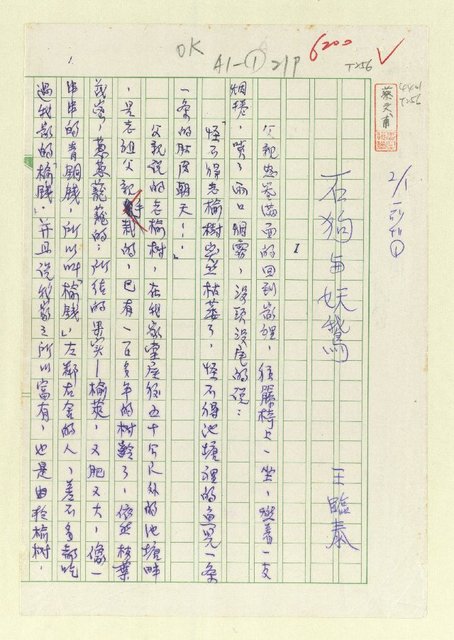 OK
A1-① 21P
6200
T256
4401
T256
蔡文甫
2/1
石狗与妖鵞
王臨泰
1
父親忠岑滿面的回到家裡，往籐椅上一坐，燃着一支
烟捲，噴了兩口烟雾，沒頭沒尾的說：
「怪不得老榆樹突然枯萎了，怪不得池塘裡的魚兒一条
一条的肚皮朝天……」
父親說的老榆樹，在我家堂屋後五十公尺外的池塘畔
，是老祖父親手栽的，已有一百多年的樹齡了，依然枝葉
茂密，蔥蔥蘢蘢的；所結的果实—榆莢，又肥又大，像一
串串的青銅錢，所以叫「榆錢」，左鄰右舍的人，差不多都吃
過我家的「榆錢」，并且說我家之所以富有，也是由於榆樹，